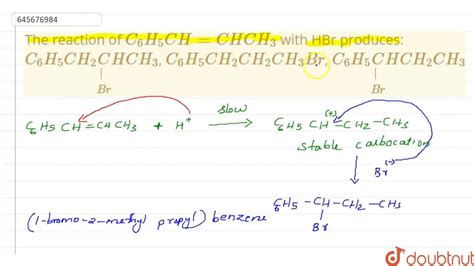 645676984
The reaction of C₆H₅CH = CHCH₃ with HBr produces:
C₆H₅CH₂CHCH₃, C₆H₅CH₂CH₂CH₃Br, C₆H₅CHCH₂CH₃
| |
Br Br
C₆H₅ CH=CH CH₃ + H⁺ slow C₆H₅ CH–CH₂–CH₃
(+)
stable carbocation
Br (-)
C₆H₅ – CH – CH₂ – CH₃
|
Br
(1-bromo-2-methyl propyl) benzene
doubtnut